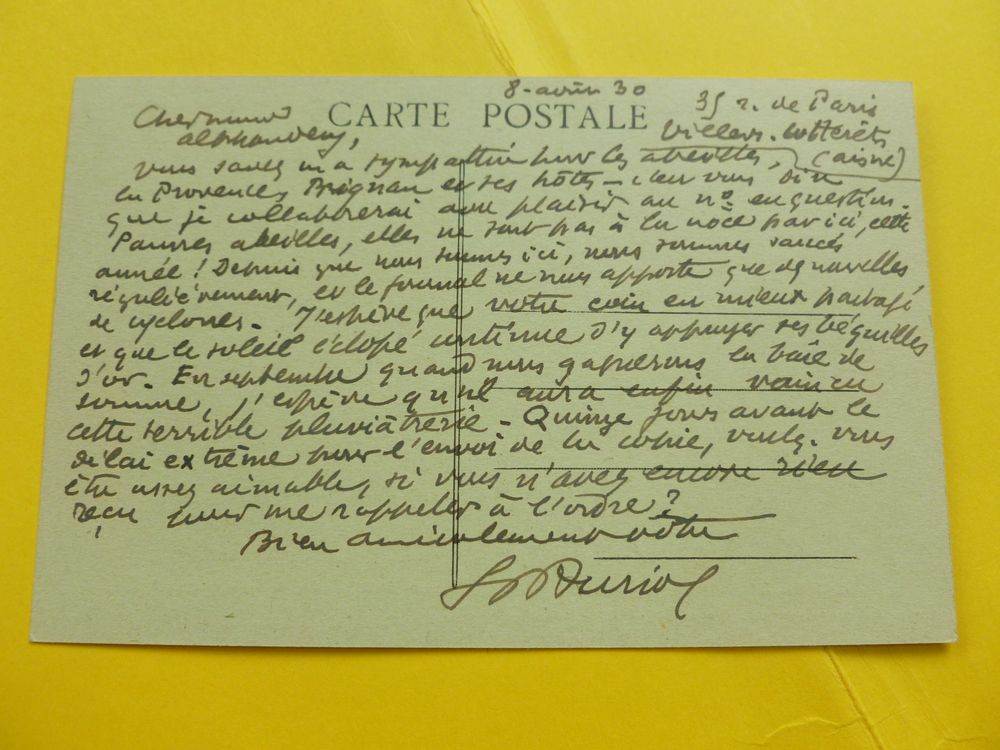 8 - août 30
CARTE POSTALE
35 r. de Paris
Villers-Cotterêts
(Aisne)
Cher
Alphandéry,
Vous savez ma sympathie pour les abeilles,
la Provence, et ses hôtes - c'est vous dire
que je collaborerai avec plaisir au no. en question.
Pauvres abeilles, elles ne sont pas à la noce par ici, cette
année! Depuis que nous sommes ici, nous sommes saucés
régulièrement, et le journal ne nous apporte que de nouvelles
de cyclones. J'espère que votre coin est mieux partagé
et que le soleil éclopé continue d'y appuyer ses béquilles
d'or. En septembre quand nous gagnerons la baie de
Somme, j'espère qu'il aura enfin vaincu
cette terrible pluviâtrerie - Quinze jours avant le
délai extrême pour l'envoi de la copie, voulez-vous
être assez aimable, si vous n'avez encore rien
reçu pour me rappeler à l'ordre?
Bien amicalement vôtre